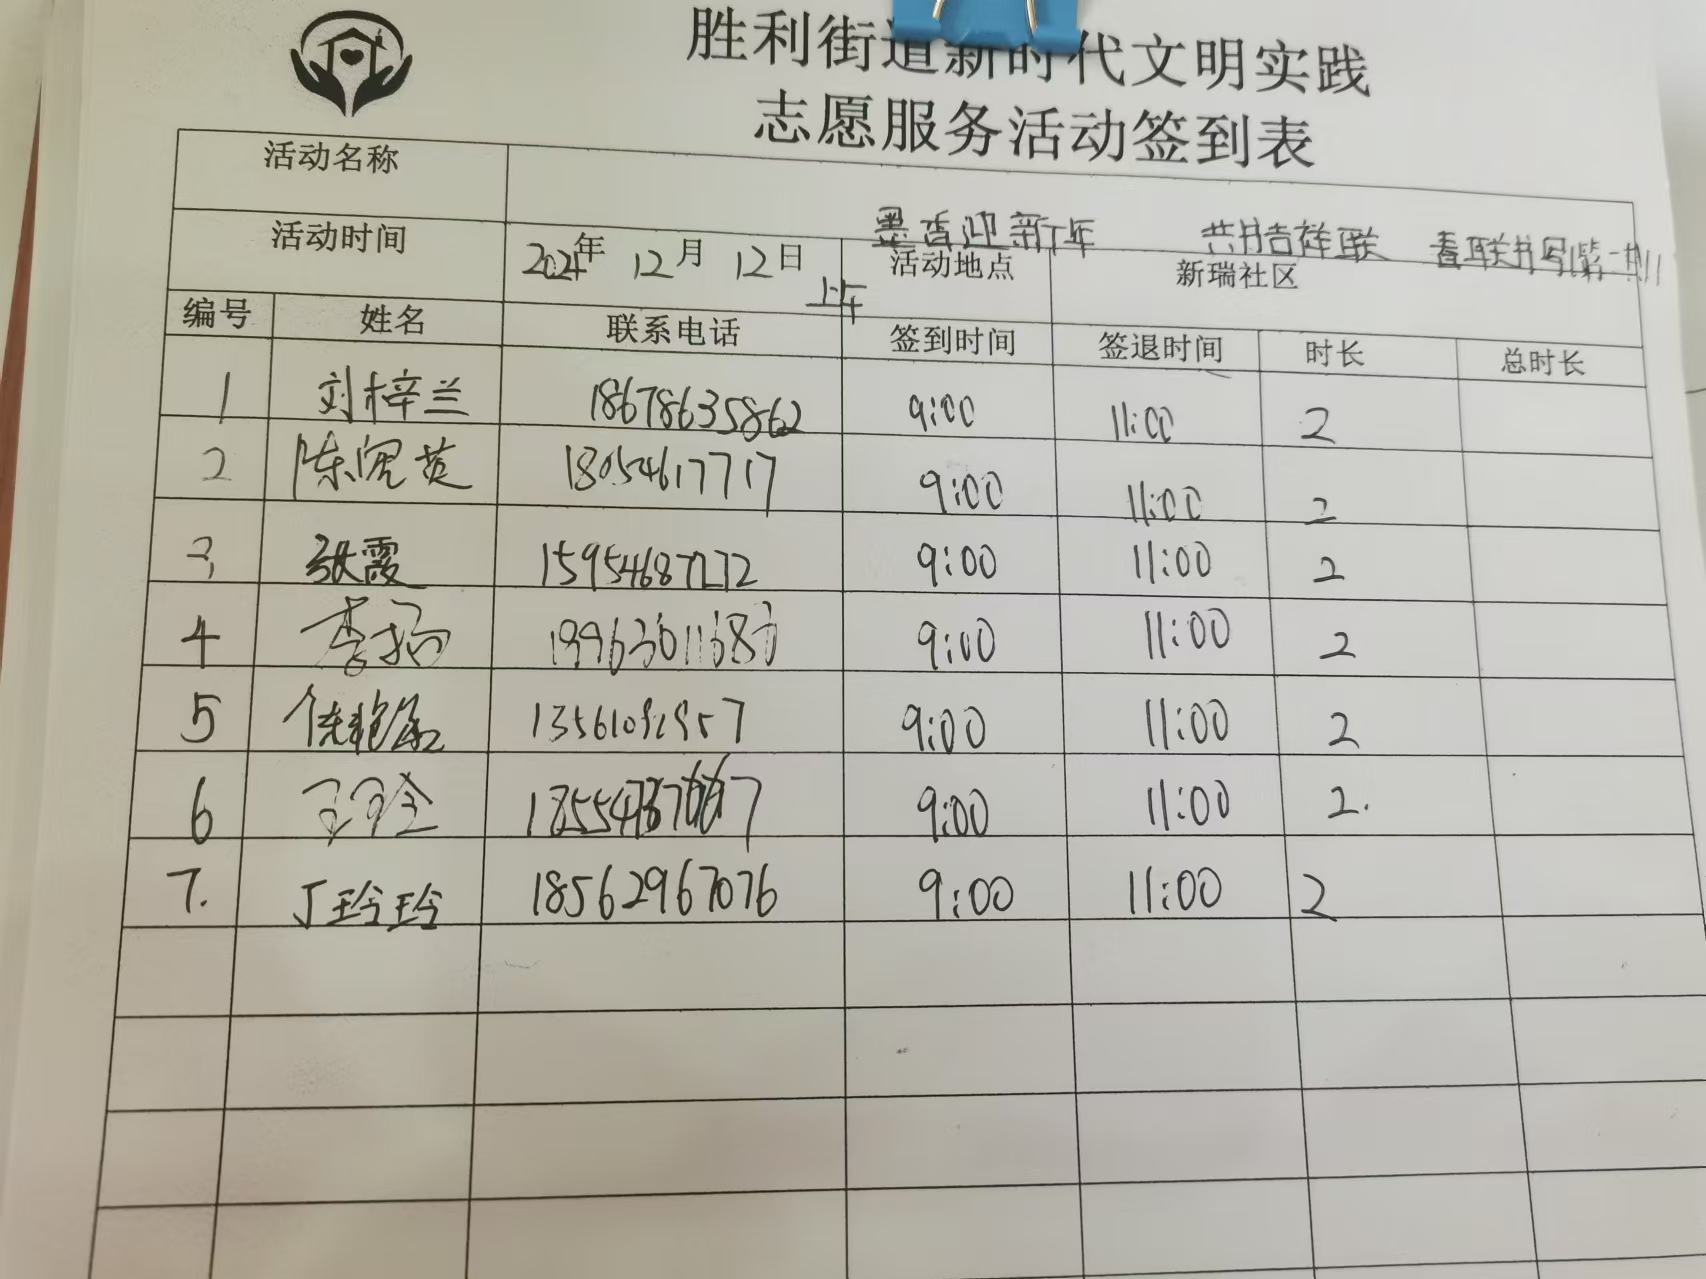 胜利街道新时代文明实践
志愿服务活动签到表
活动名称 墨香迎新年 共书吉祥联 春联书写(第一期)
活动时间 2024年 12月 12日 上午 活动地点 新瑞社区
编号 姓名 联系电话 签到时间 签退时间 时长 总时长
1 刘梓兰 18678635862 9:00 11:00 2
2 陈 英 18054617717 9:00 11:00 2
3 张霞 15954687272 9:00 11:00 2
4 李 9:00 11:00 2
5 9:00 11:00 2
6 王 9:00 11:00 2.
7. 丁玲玲 18562967076 9:00 11:00 2